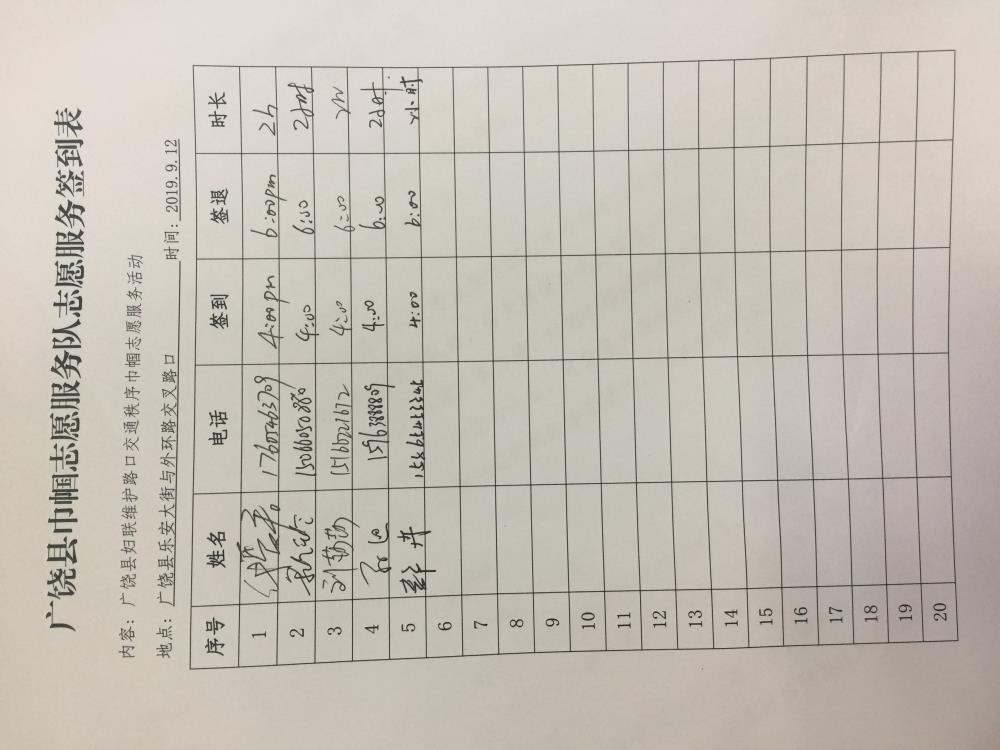 广饶县巾帼志愿服务队志愿服务签到表
内容：广饶县妇联维护路口交通秩序巾帼志愿服务活动
地点：广饶县乐安大街与外环路交叉路口 时间：2019.9.12
序号 姓名 电话 签到 签退 时长
1 17605463709 4:00pm 6:00pm 2h
2 15066050880 4:00 6:00 2小时
3 刘莎莎 15166721672 4:00 6:00 2h
4 4:00 6:00 2小时
5 4:00 6:00 2小时
6
7
8
9
10
11
12
13
14
15
16
17
18
19
20